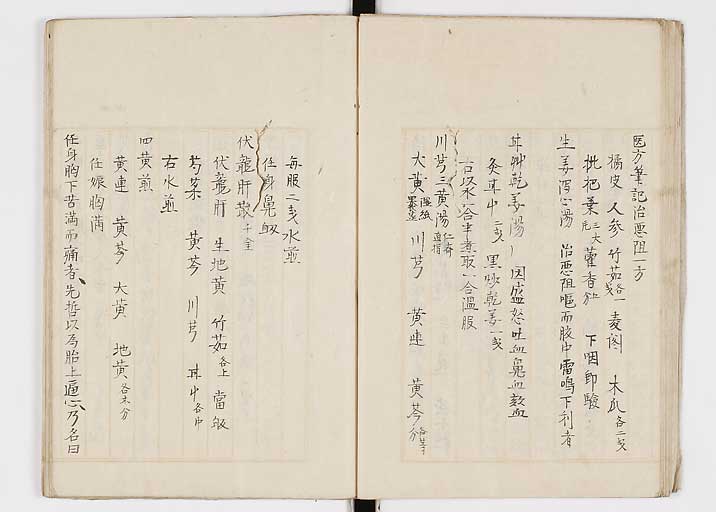 医方筆記治悪阻一方
橘皮 人参 竹茹 各一戔 麦門 木瓜 各二戔
枇杷葉 三大 藿香 下咽即験
生姜瀉心湯 治悪阻嘔而腹中雷鳴下利者
甘艸乾姜湯 因盛怒吐血鼻血
灸甘艸 二戔 黒炒乾姜 一戔
右以水一合半煮取一合温服
川芎三黄湯
大黄 川芎 黄連 黄芩 各等分
毎服二戔水煎
任身鼻衄
伏龍肝散 千金
伏龍肝 生地黄 竹茹 各上 當
芍薬 黄芩 川芎 甘艸 各中
右水煎
四黄煎
黄連 黄芩 大黄 地黄 各木分
任娠胸満
任身胸下苦満而痛者先哲以為胎上逼心乃名曰